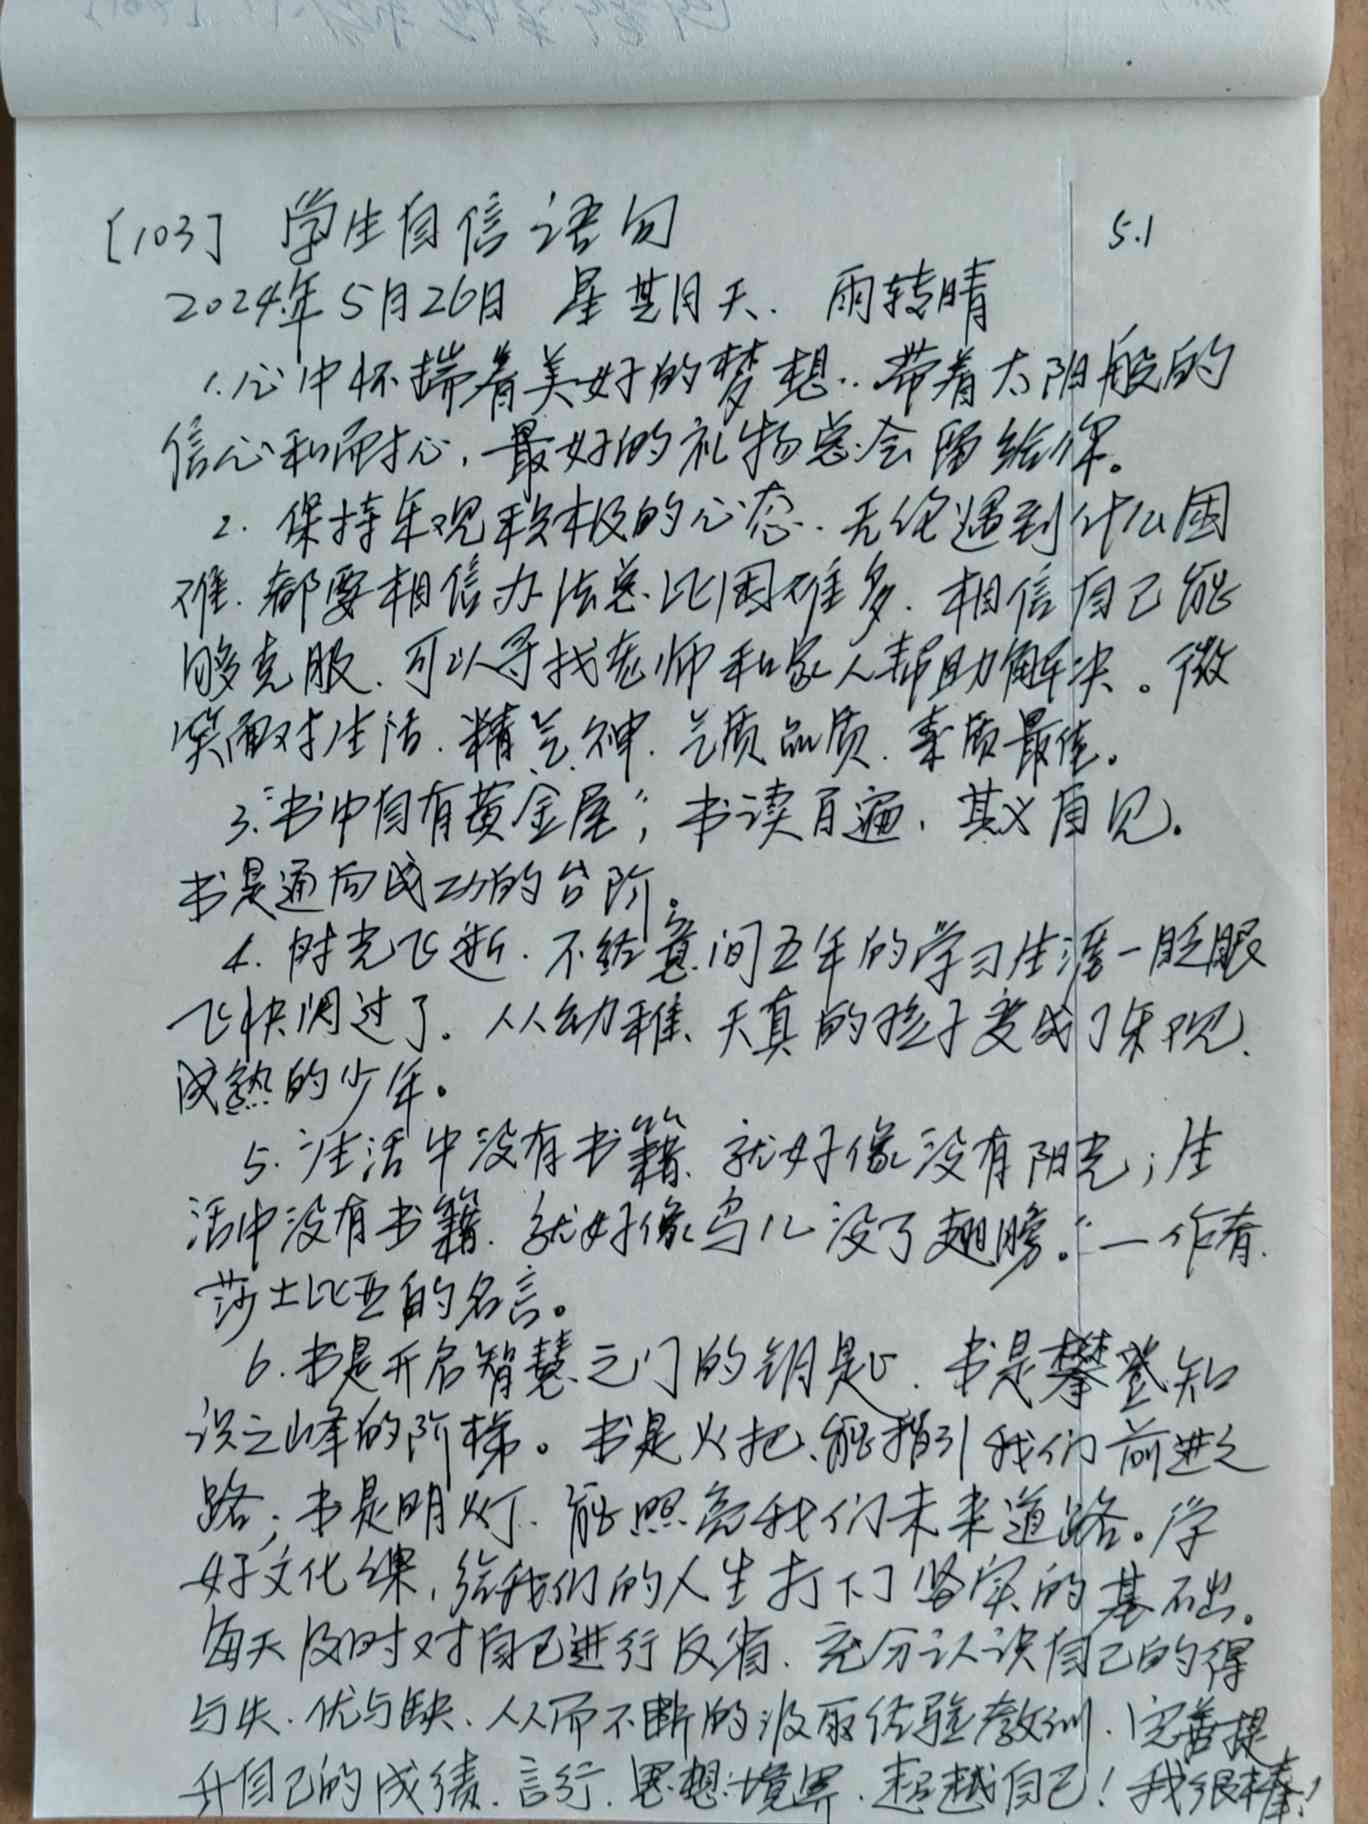 [103] 学生自信语句 5.1
2024年5月26日 星期天. 雨转晴
1.心中怀揣着美好的梦想.带着太阳般的
信心和耐心,最好的礼物总会留给你。
2. 保持乐观积极的心态.无论遇到什么困
难.都要相信办法总比困难多.相信自己能
够克服.可以寻找老师和家人帮助解决。微
笑面对生活.精气神.气质品质.素质最佳。
3.“书中自有黄金屋”;书读百遍,其义自见。
书是通向成功的台阶。
4. 时光飞逝.不经意间五年的学习生涯一眨眼
飞快闪过了。从幼稚、天真的孩子变成了乐观、
成熟的少年。
5.“生活中没有书籍.就好像没有阳光;生
活中没有书籍.就好像鸟儿没了翅膀。”—作者.
莎士比亚的名言。
6.书是开启智慧之门的钥匙.书是攀登知
识之峰的阶梯。书是火把、能指引我们前进之
路;书是明灯.能照亮我们未来道路。学
好文化课,给我们的人生打下了坚实的基础。
每天及时对自己进行反省.充分认识自己的得
与失.优与缺.从而不断的汲取经验教训.完善提
升自己的成绩.言行.思想.境界.超越自己!我很棒!